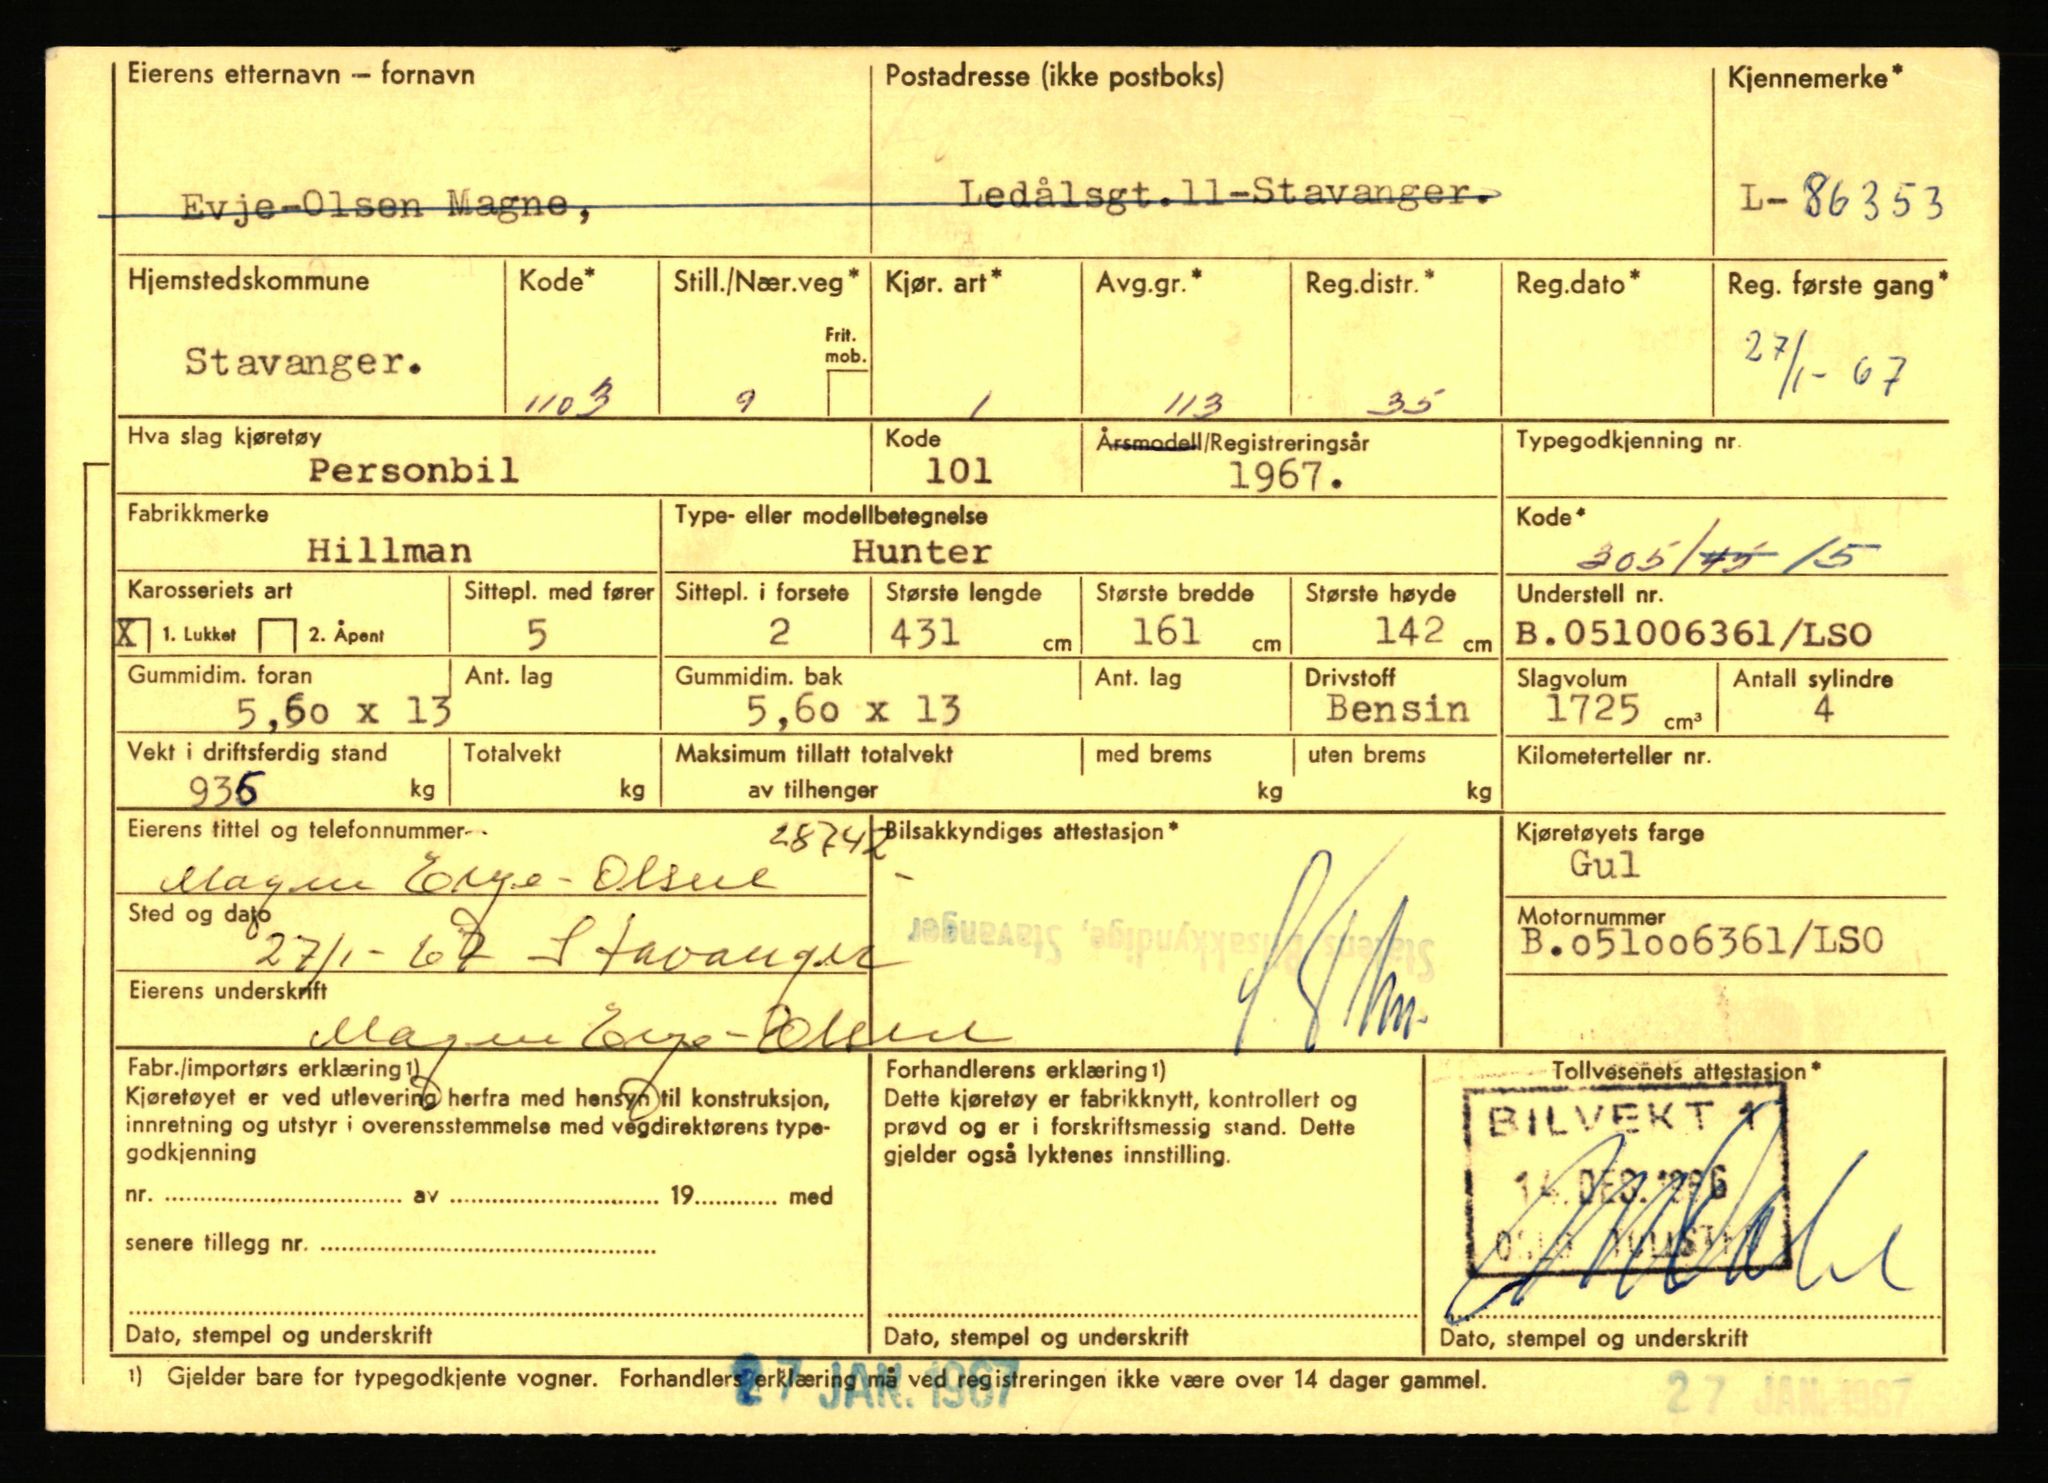 Eierens etternavn – fornavn
Evje-Olsen Magne,
Postadresse (ikke postboks)
Ledålsgt.11-Stavanger.
Kjennemerke*
L-86353
Hjemstedskommune
Stavanger.
Kode*
1103
Still./Nær.veg*
Frit.
mob.
9
Kjør. art*
1
Avg.gr.*
113
Reg.distr.*
35
Reg.dato*
Reg. første gang*
27/1-67
Hva slag kjøretøy
Personbil
Kode
101
Årsmodell/Registreringsår
1967.
Typegodkjenning nr.
Fabrikkmerke
Hillman
Type- eller modellbetegnelse
Hunter
Kode*
305/45/5
Karosseriets art
X 1. Lukket 2. Åpent
Sittepl. med fører
5
Sittepl. i forsete
2
Største lengde
431 cm
Største bredde
161 cm
Største høyde
142 cm
Understell nr.
B.051006361/LSO
Gummidim. foran
5,60 x 13
Ant. lag
Gummidim. bak
5,60 x 13
Ant. lag
Drivstoff
Bensin
Slagvolum
1725 cm³
Antall sylindre
4
Vekt i driftsferdig stand
935 kg
Totalvekt
kg
Maksimum tillatt totalvekt
av tilhenger
med brems
kg
uten brems
kg
Kilometerteller nr.
Eierens tittel og telefonnummer
28742
Magne Evje-Olsen
Bilsakkyndiges attestasjon*
Statens Bilsakkyndige, Stavanger
Kjøretøyets farge
Gul
Sted og dato
27/1-67 Stavanger
Motornummer
B.051006361/LSO
Eierens underskrift
Magne Evje-Olsen
Fabr./importørs erklæring1)
Kjøretøyet er ved utlevering herfra med hensyn til konstruksjon,
innretning og utstyr i overensstemmelse med vegdirektørens type-
godkjenning
nr. .......... av .......... 19.......... med
senere tillegg nr. ..........
Dato, stempel og underskrift
Forhandlerens erklæring1)
Dette kjøretøy er fabrikknytt, kontrollert og
prøvd og er i forskriftsmessig stand. Dette
gjelder også lyktenes innstilling.
Dato, stempel og underskrift
Tollvesenets attestasjon*
BILVEKT 1
14. DES. 1966
Dato, stempel og underskrift
1) Gjelder bare for typegodkjente vogner. Forhandlers erklæring må ved registreringen ikke være over 14 dager gammel.
27 JAN. 1967
27 JAN. 1967